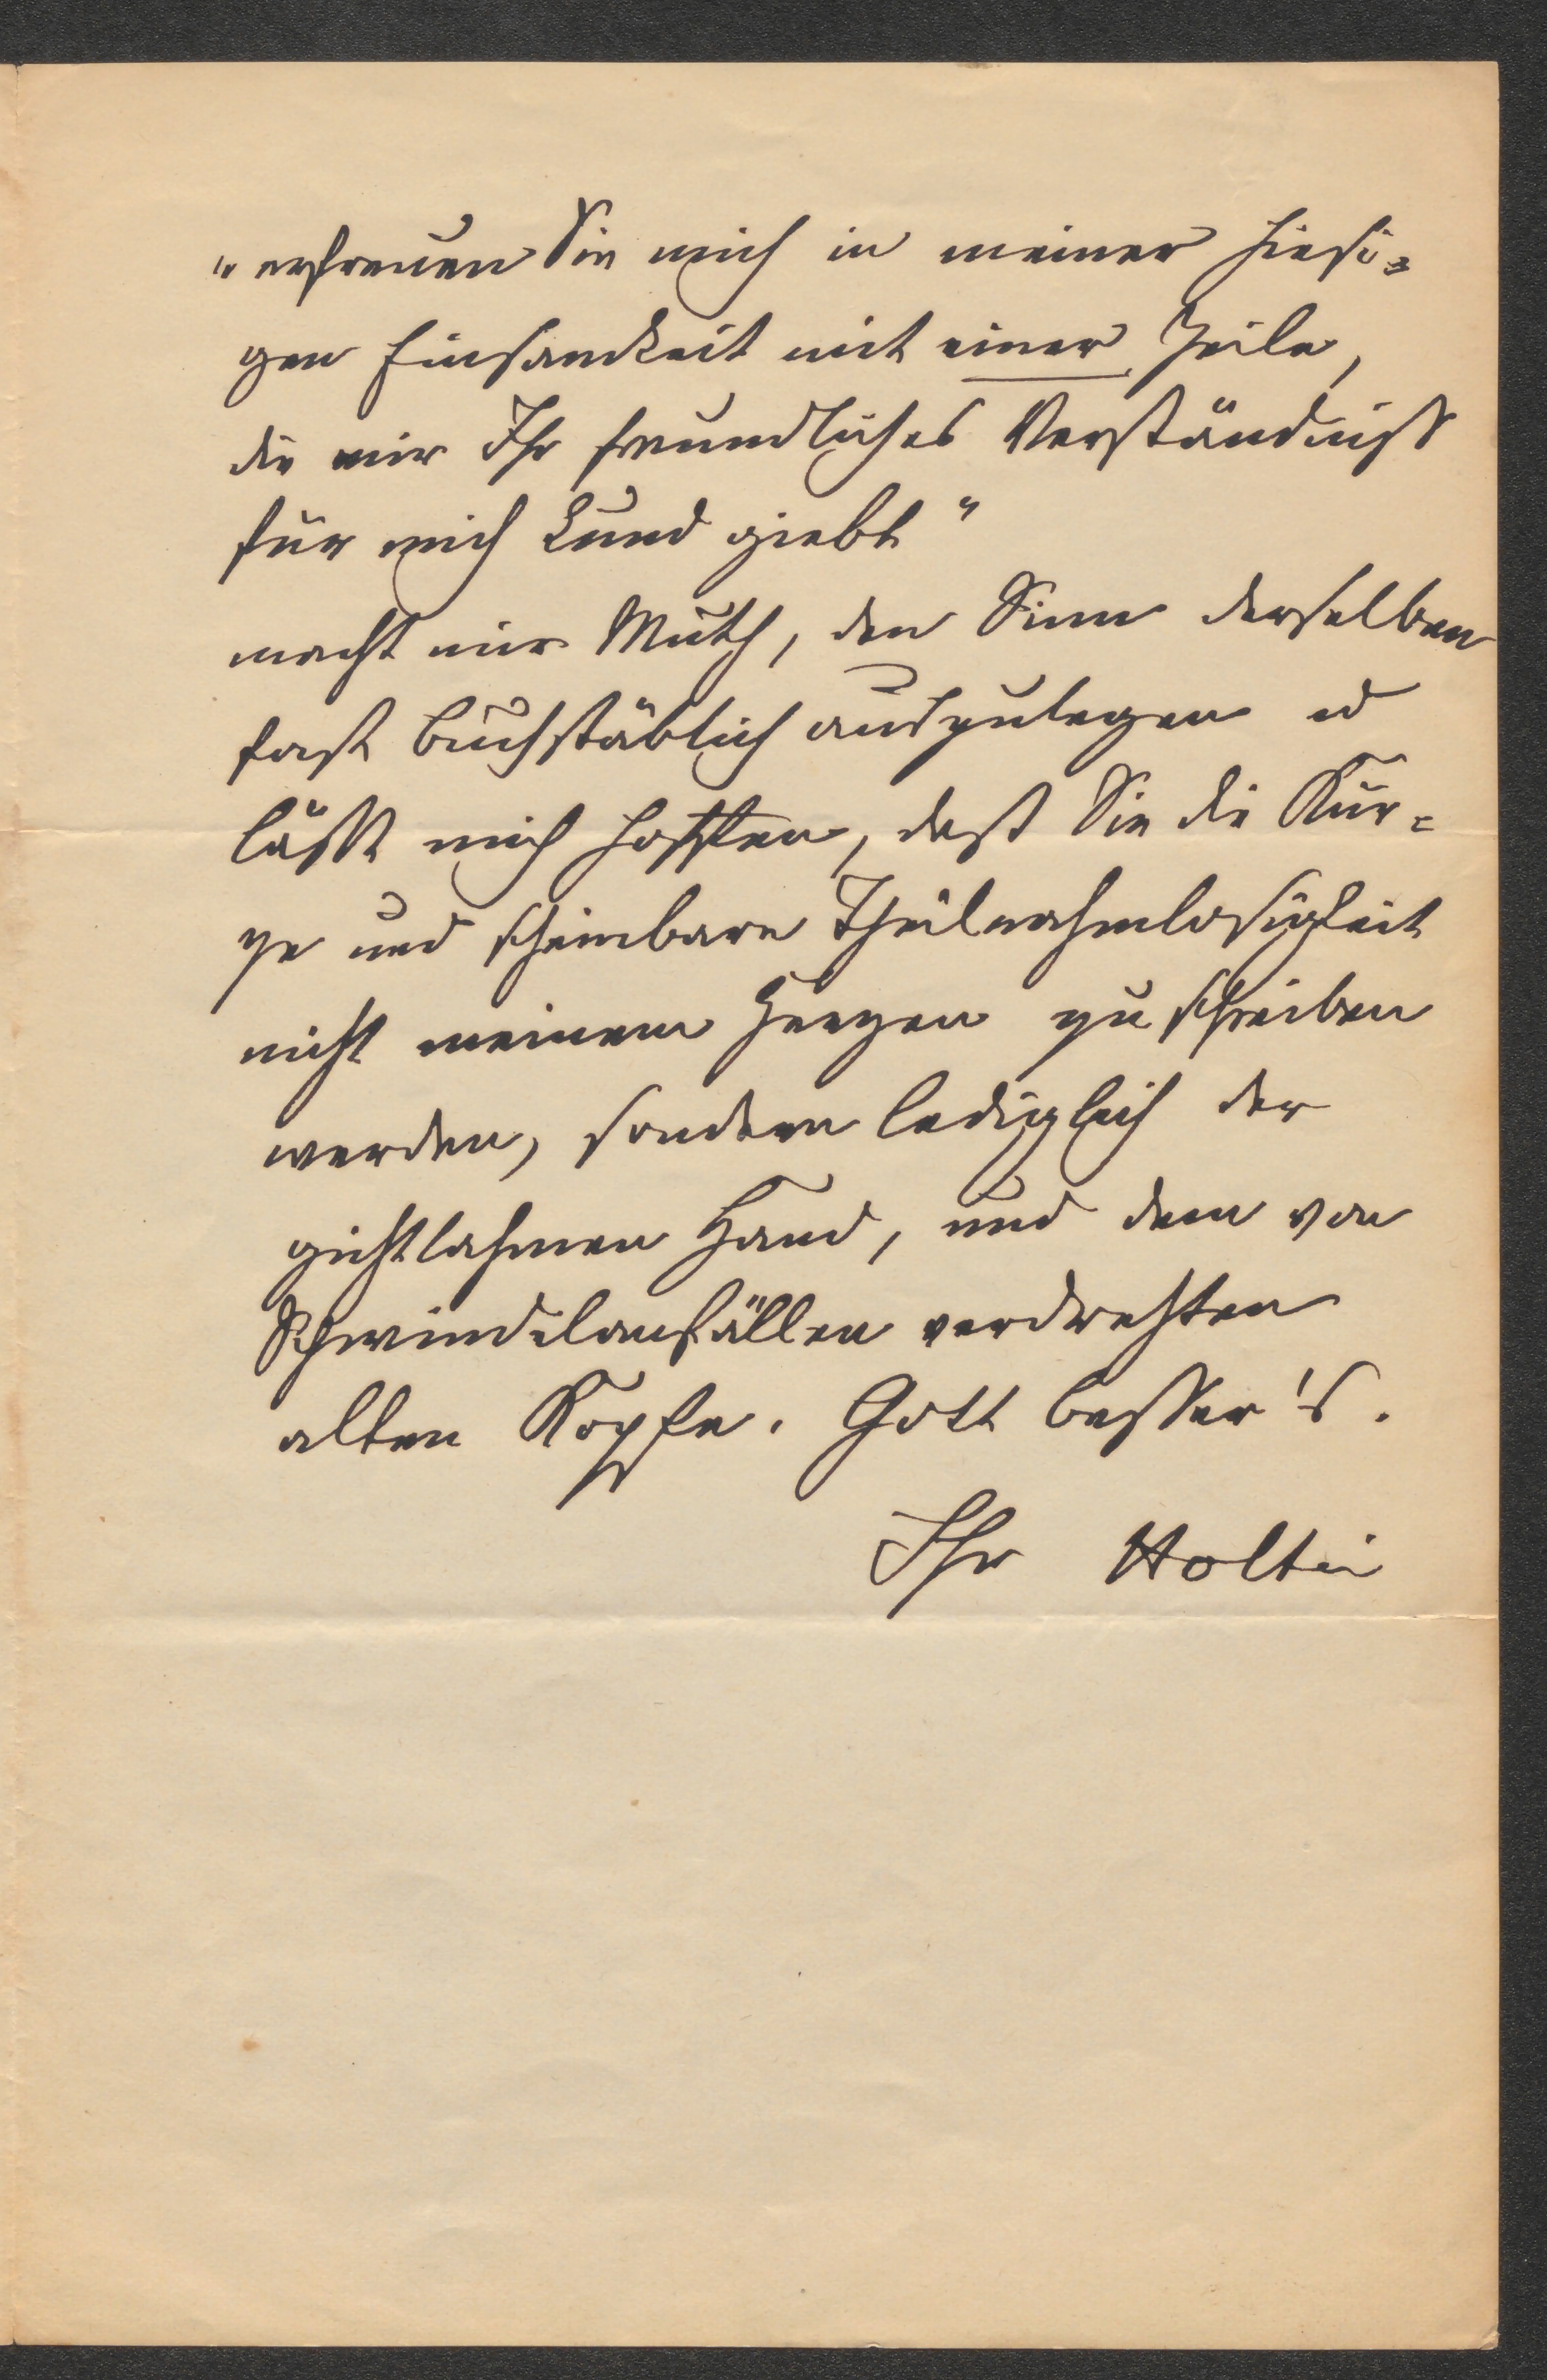 "erfreuen Sie mich in meiner hiesi=
gen Einsamkeit mit einer Zeile,
die mir Ihr freundliches Verständniß
für mich kund giebt"
macht mir Muth, den Sinn derselben
fast buchstäblich auszulegen u
läßt mich hoffen, daß Sie die Kür=
ze und scheinbare Theilnahmlosigkeit
nicht meinem Herzen zuschreiben
werden, sondern lediglich der
gichtlahmen Hand, und dem von
Schwindelanfällen verdrehten
alten Kopfe. Gott besser's.
Ihr Holtei